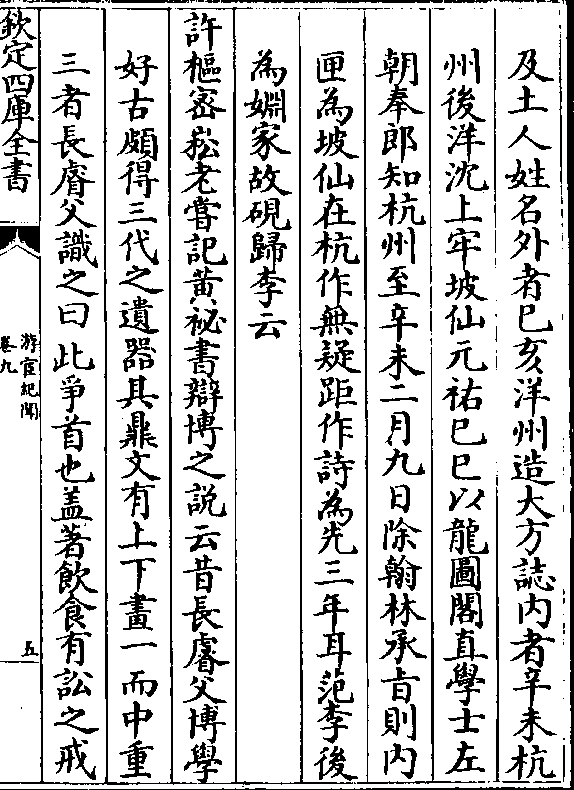 及土人姓名外者已亥洋州造大方誌内者辛未杭
州後洋沈上牢坡仙元祐已巳以龍圖閣直學士左
朝奉郎知杭州至辛未二月九日除翰林承旨則内
匣為坡仙在杭作無疑距作詩為先三年耳范李後
為婣家故硯歸李云
許樞密崧老嘗記黄祕書辯博之説云昔長睿父博學
好古頗得三代之遺器其鼎文有上下畫一而中重
三者長睿父識之曰此爭首也盖著飲食有訟之戒
欽定四庫全書
游宦紀聞
卷九
五